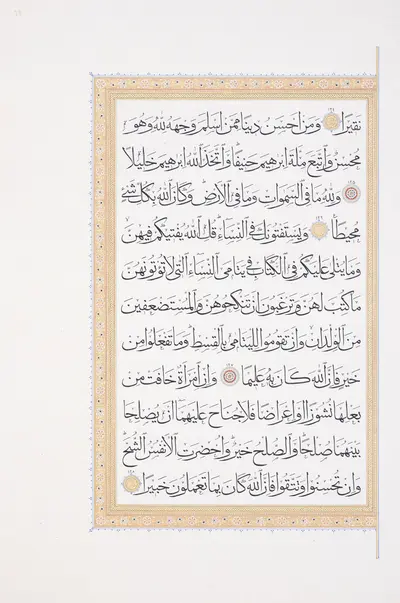 نَقِيرًا ١٢٤ وَمَنْ أَحْسَنُ دِينًا مِمَّنْ أَسْلَمَ وَجْهَهُ لِلَّهِ وَهُوَ
مُحْسِنٌ وَاتَّبَعَ مِلَّةَ إِبْرَهِيمَ حَنِيفًا وَاتَّخَذَ اللَّهُ إِبْرَهِيمَ خَلِيلًا
١٢٥ وَلِلَّهِ مَا فِي السَّمَوَاتِ وَمَا فِي الْأَرْضِ وَكَانَ اللَّهُ بِكُلِّ شَيْءٍ
مُحِيطًا ١٢٦ وَيَسْتَفْتُونَكَ فِي النِّسَاءِ قُلِ اللَّهُ يُفْتِيكُمْ فِيهِنَّ
وَمَا يُتْلَى عَلَيْكُمْ فِي الْكِتَابِ فِي يَتَامَى النِّسَاءِ الَّتِي لَا تُؤْتُونَهُنَّ
مَا كُتِبَ لَهُنَّ وَتَرْغَبُونَ أَنْ تَنْكِحُوهُنَّ وَالْمُسْتَضْعَفِينَ
مِنَ الْوِلْدَانِ وَأَنْ تَقُومُوا لِلْيَتَامَى بِالْقِسْطِ وَمَا تَفْعَلُوا مِنْ
خَيْرٍ فَإِنَّ اللَّهَ كَانَ بِهِ عَلِيمًا ١٢٧ وَإِنِ امْرَأَةٌ خَافَتْ مِنْ
بَعْلِهَا نُشُوزًا أَوْ إِعْرَاضًا فَلَا جُنَاحَ عَلَيْهِمَا أَنْ يُصْلِحَا
بَيْنَهُمَا صُلْحًا وَالصُّلْحُ خَيْرٌ وَأُحْضِرَتِ الْأَنْفُسُ الشُّحَّ
وَإِنْ تُحْسِنُوا وَتَتَّقُوا فَإِنَّ اللَّهَ كَانَ بِمَا تَعْمَلُونَ خَبِيرًا ١٢٨